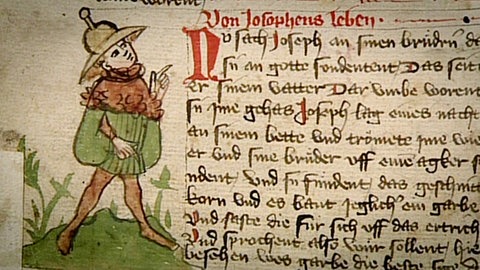 Von Josephens leben.
Nv sach Joseph an sinen brüdern da
sy an gotte sondentent Das seit
er sinem vatter Dar vmbe worent
sy ime gehas Joseph lag eines nacht
an sinem bette vnd trömete ime wie
er vnd sine brüder vff eine agker
vnd sy fundent das geschnit
korn vnd es bant jeglich ein garbe
vnd saste die für sich vff das ertrich
vnd sprochent also wir sollent
besehen wes garbe die beste